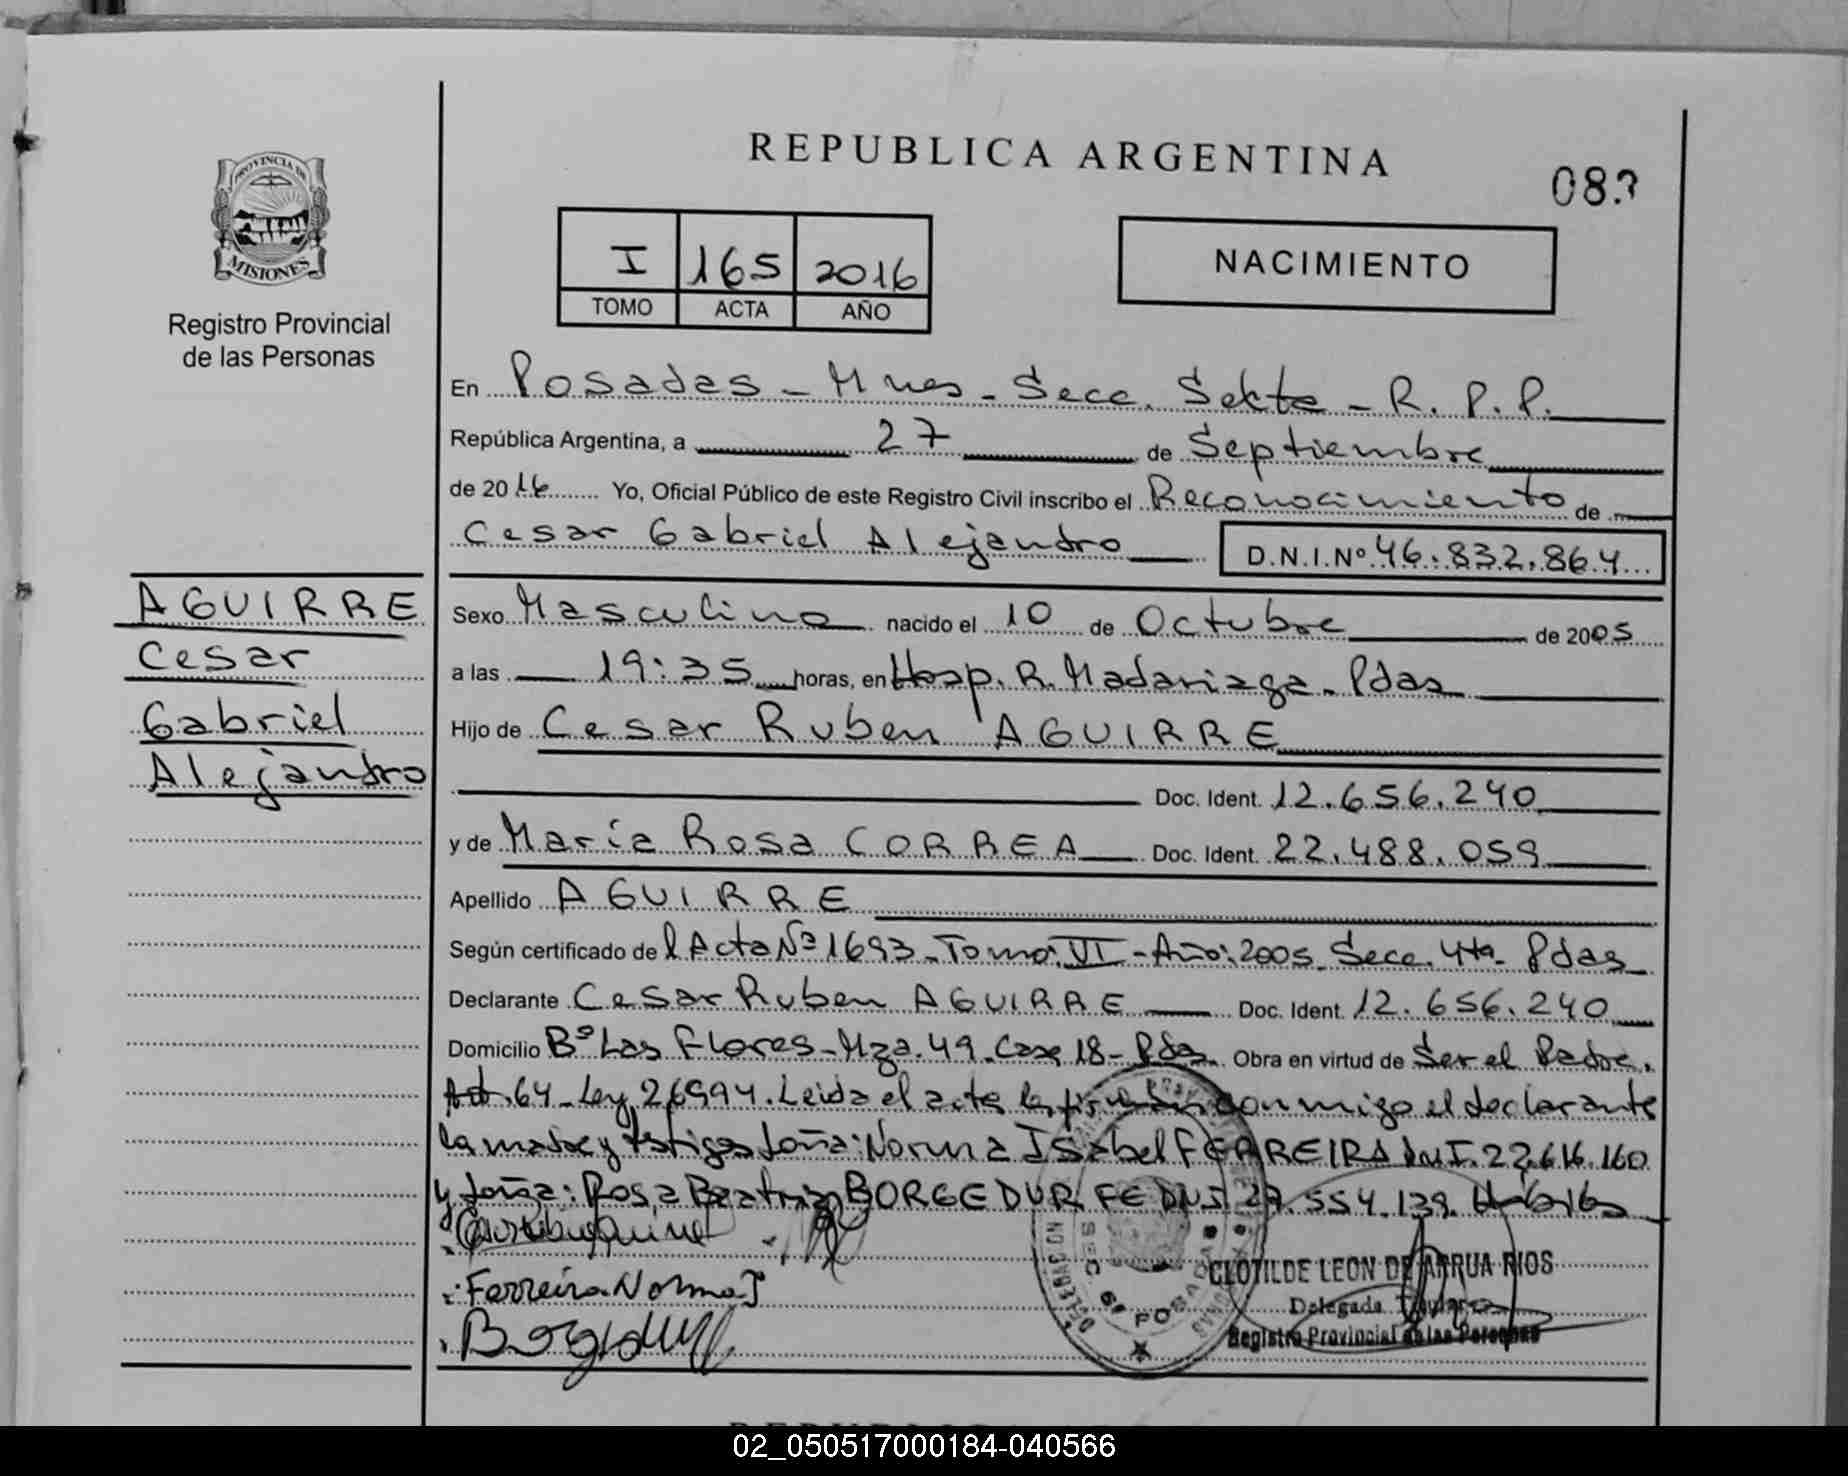 REPUBLICA ARGENTINA
PROVINCIA DE
MISIONES
Registro Provincial
de las Personas
I 165 2016
TOMO ACTA AÑO
NACIMIENTO
En Posadas - Mnes - Secc. Sexta - R. P. P.
República Argentina, a 27 de Septiembre
de 2016 Yo, Oficial Público de este Registro Civil inscribo el Reconocimiento de
Cesar Gabriel Alejandro D.N.I.Nº 46.832.864
AGUIRRE
Cesar
Gabriel
Alejandro
Sexo Masculino nacido el 10 de Octubre de 2005
a las 19:35 horas, en Hosp. R. Madariaga - Pdas
Hijo de Cesar Ruben AGUIRRE
Doc. Ident. 12.656.240
y de María Rosa CORREA Doc. Ident. 22.488.059
Apellido AGUIRRE
Según certificado del Acta Nº 1693 - Tomo: VI - Año: 2005 Secc. 4ta - Pdas
Declarante Cesar Ruben AGUIRRE Doc. Ident. 12.656.240
Domicilio Bº Las Flores - Mza. 49. Casa 18 - Pdas. Obra en virtud de Ser el Padre.
Art. 64 - Ley 26994. Leida el acta la conmigo el declarante
la madre y testigos doña: Norma Isabel FERREIRA DNI. 22.616.160
y doña: Rosa Beatriz BORGEDUR FE DNI 27.554.139. Hábiles
Ferreira Norma I
SEC. 6ª POSADAS
CLOTILDE LEON DE ARRUA RIOS
Delegada Titular
Registro Provincial de las Personas
02_050517000184-040566